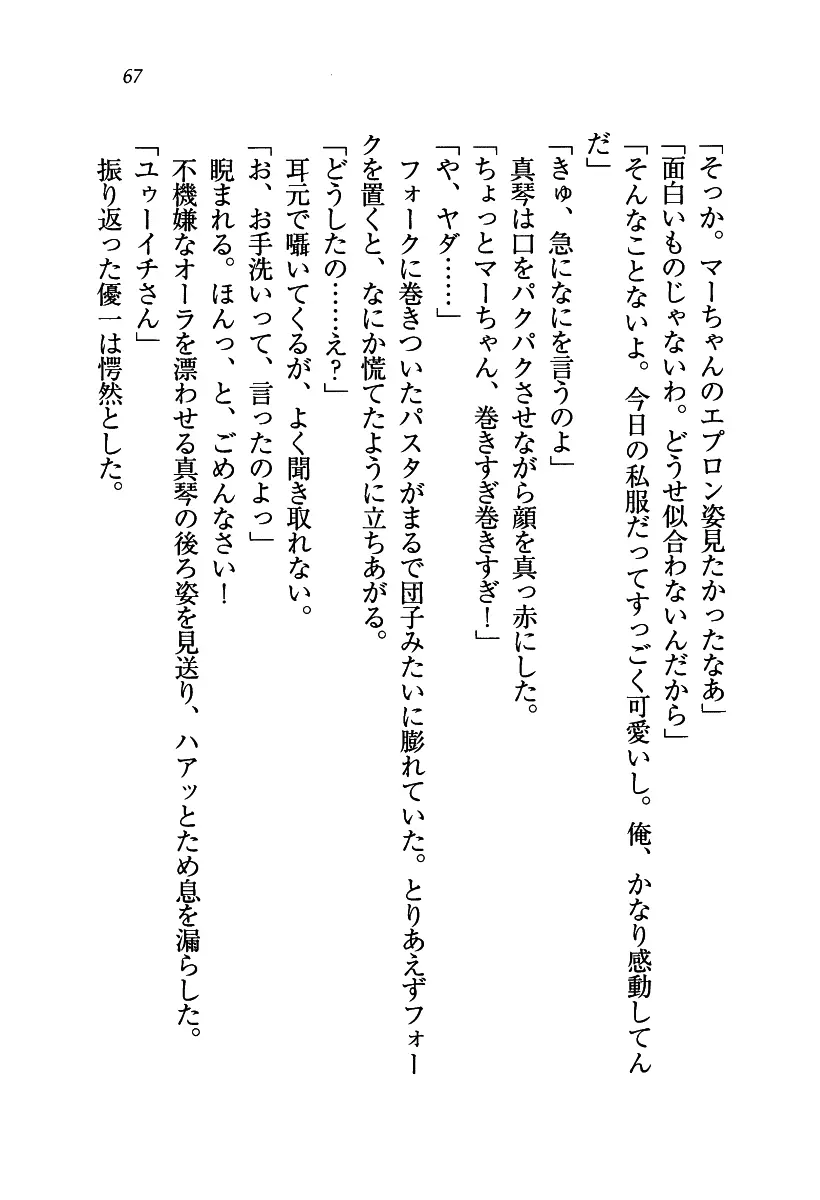 67
「そっか。マーちゃんのエプロン姿見たかったなあ」
「面白いものじゃないわ。どうせ似合わないんだから」
「そんなことないよ。今日の私服だってすっごく可愛いし。俺、かなり感動してん
だ」
「きゅ、急になにを言うのよ」
真琴は口をパクパクさせながら顔を真っ赤にした。
「ちょっとマーちゃん、巻きすぎ巻きすぎ！」
「や、ヤダ……」
フォークに巻きついたパスタがまるで団子みたいに膨れていた。とりあえずフォー
クを置くと、なにか慌てたように立ちあがる。
「どうしたの……え？」
耳元で囁いてくるが、よく聞き取れない。
「お、お手洗いって、言ったのよっ」
睨まれる。ほんっ、と、ごめんなさい！
不機嫌なオーラを漂わせる真琴の後ろ姿を見送り、ハアッとため息を漏らした。
「ユゥーイチさん」
振り返った優一は愕然とした。